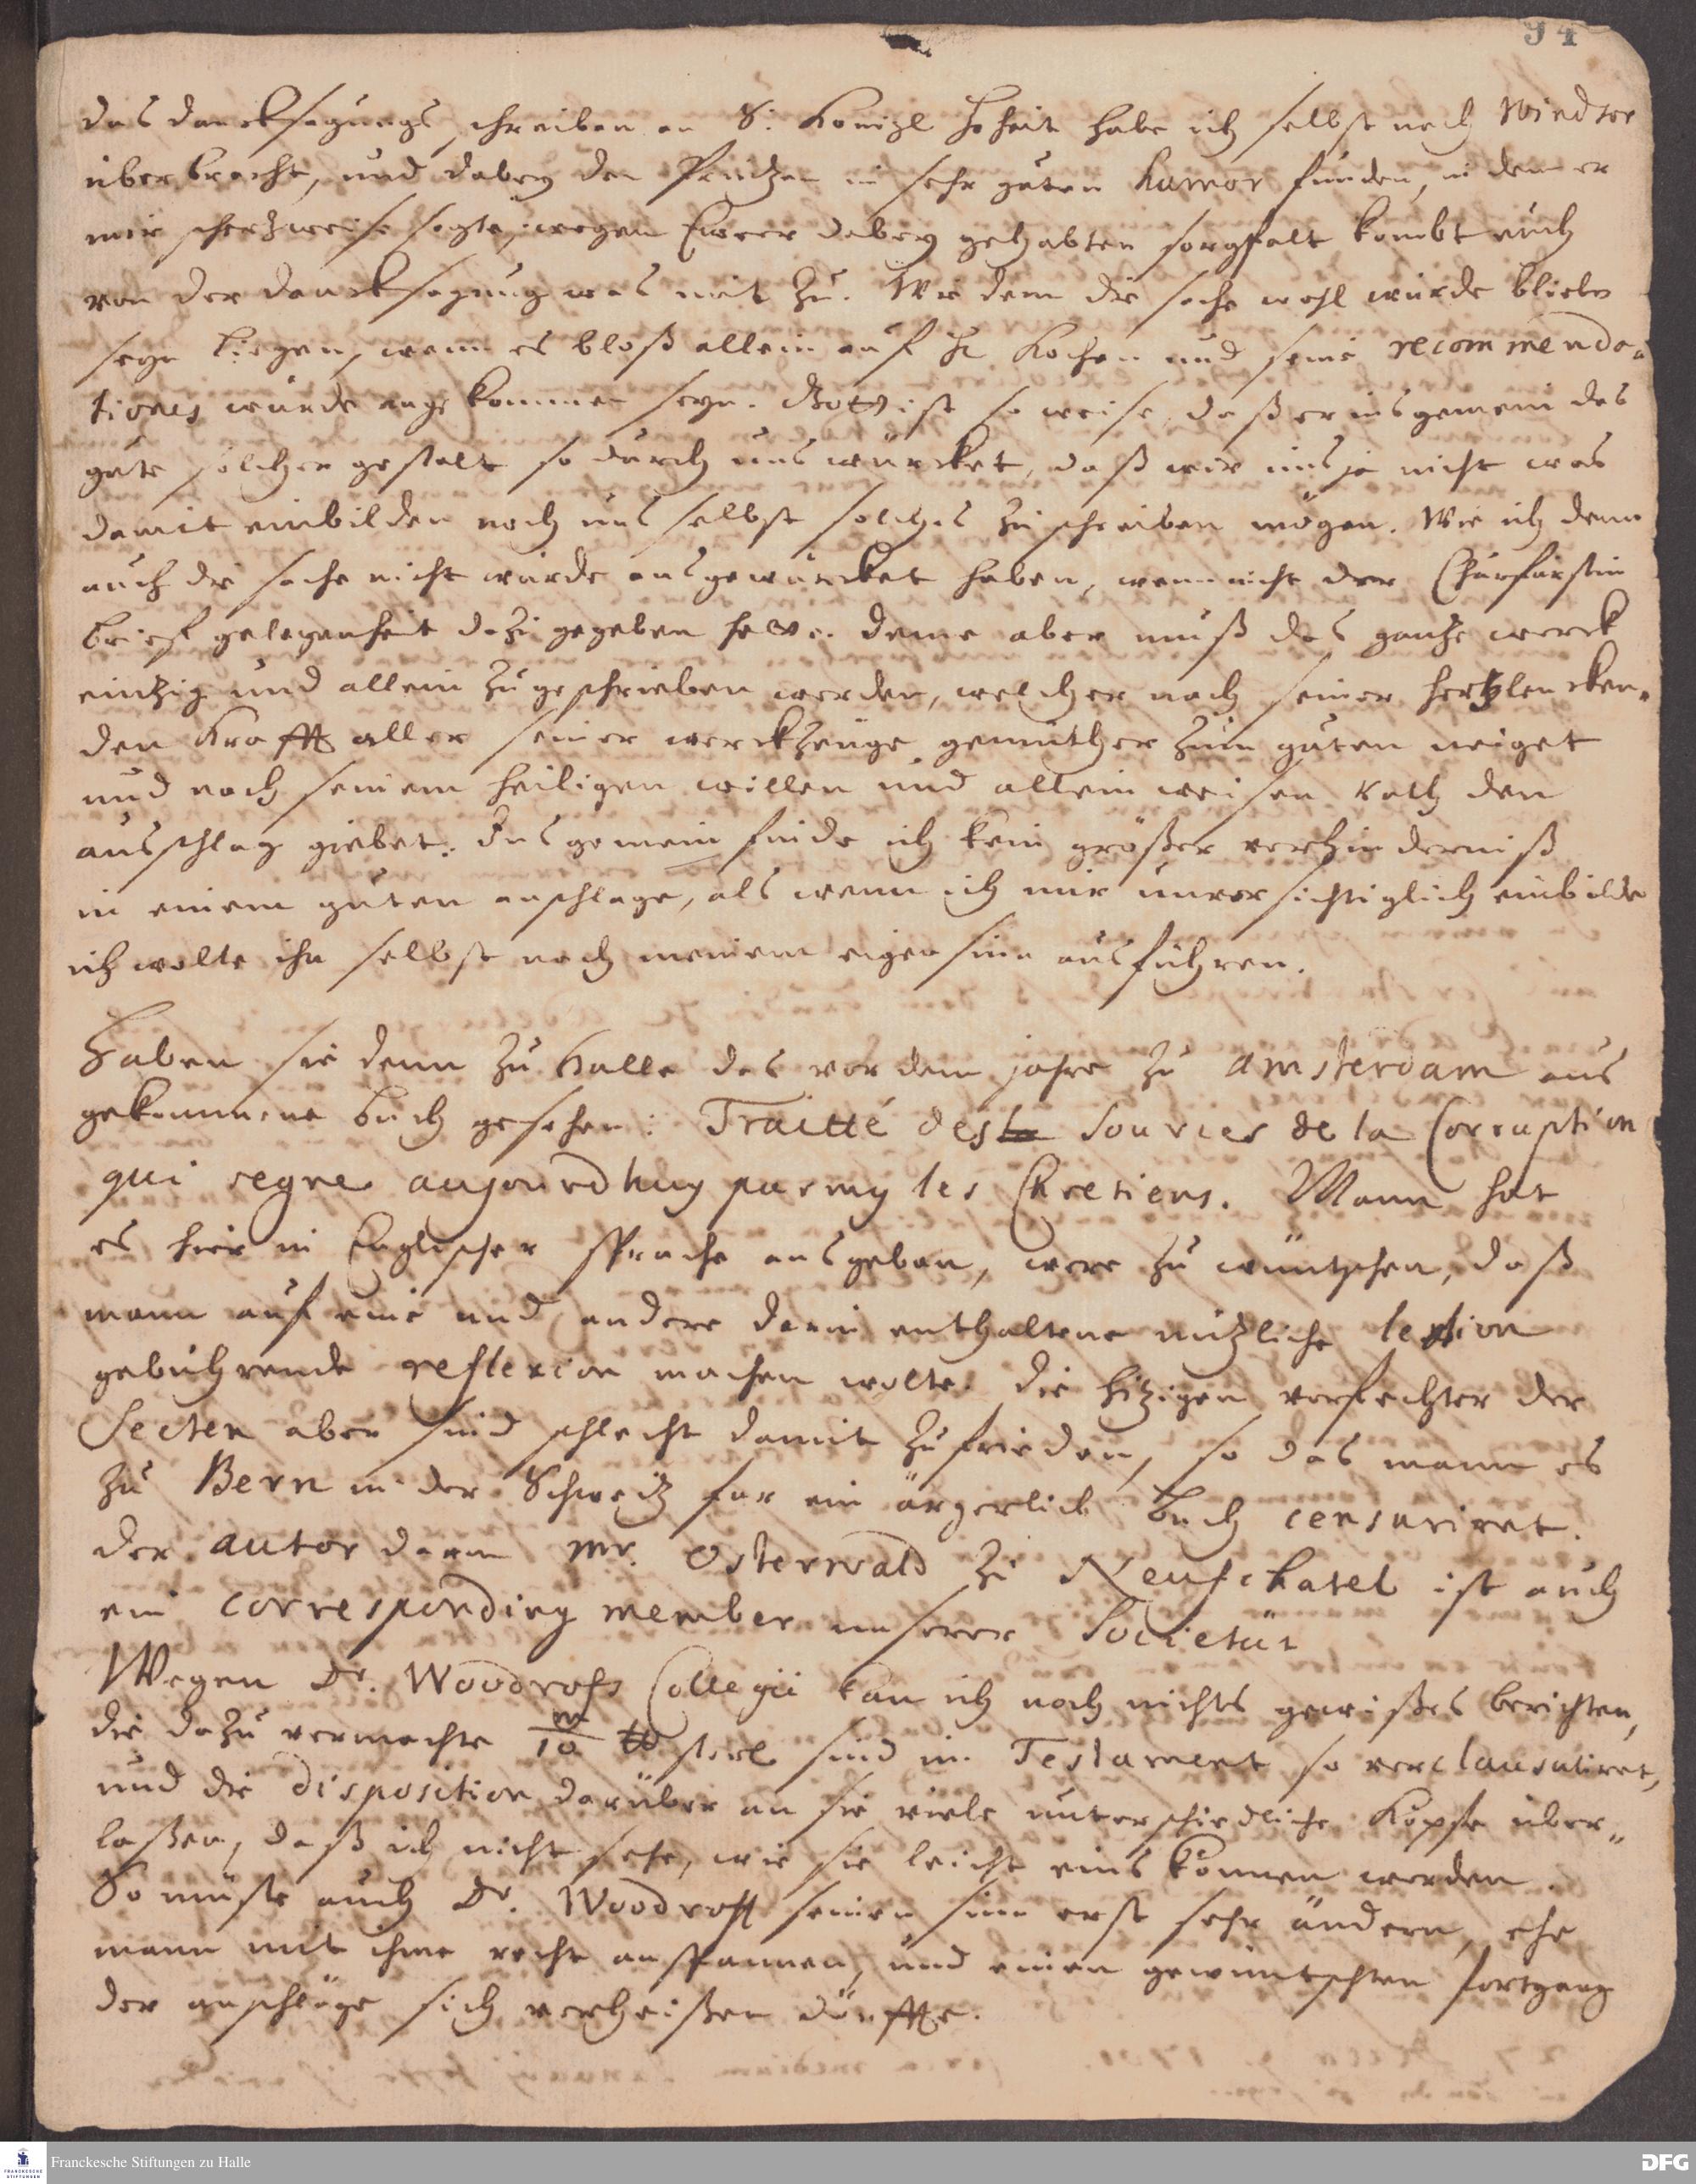 94
das dancksagungs schreiben an S. Königl Hoheit habe ich selbst nach Windsor
überbracht, und dabey den Printzen in sehr guten humor funden, in dem er
mir schertzweise sagte, wegen Ewrer dabey gehabten sorgfalt kombt euch
von der dancksagung was mit zu. Wie denn die sache wohl würde blieben
seyn liegen, wenn es bloß allein auf H Kochen und seine recommenda-
tiones würde angekommen seyn. Gott ist so weise, daß er ins gemein das
gute solcher gestalt so durch uns würcket, daß wir uns ja nicht was
damit einbilden noch uns selbst solches zu schreiben mögen. Wie ich denn
auch die sache nicht würde ausgewürcket haben, wenn nicht der Churfürstin
brieff gelegenheit dazu gegeben hette. deme aber muß das gantze werck
eintzig und allein zugeschrieben werden, welcher nach seiner hertzlencken-
den Krafft aller seiner werckzeuge gemüther zum guten neiget
und nach seinem heiligen willen und allein weisen rath den
ausschlag giebet. Ins gemein finde ich kein größer verhinderniß
in einem guten anschlage, als wenn ich mir unvorsichtiglich einbilde
ich wolte ihn selbst nach meinem eigen sinn ausführen.
Haben sie denn zu Halle das vor dem jahre zu Amsterdam aus
gekommene buch gesehen: Traitté des sources de la Corruption
qui regne aujourdhuy parmy les Chretiens. Mann hat
es hier in Englischer sprache ausgeben, were zu wüntschen, daß
mann auf eine und andere darin enthaltene nützliche lection
gebührende reflexion machen wolte. die hitzigen verfechter der
Secten aber sind schlecht damit zu frieden, so das mann es
zu Bern in der Schweitz für ein ärgerlich buch censuriret.
der autor davon Mr. Osterwald zu Neufchatel ist auch
ein corresponding member unserer Societät
Wegen Dr. Woodrofs Collegii kan ich noch nichts gewißes berichten,
die dazu vermachte 10 m ℔ sterl sind im Testament so verclausuliret,
und die disposition darüber an sie viele unterschiedliche Köpfe über-
laßen, daß ich nicht sehe, wie sie leicht eins können werden.
So müste auch Dr. Woodroff seinen sinn erst sehr ändern, ehe
mann mit ihme recht anspannen, und einen gewüntschten fortgang
der anschläge sich verheißen dörffte.
Franckesche Stiftungen zu Halle
DFG